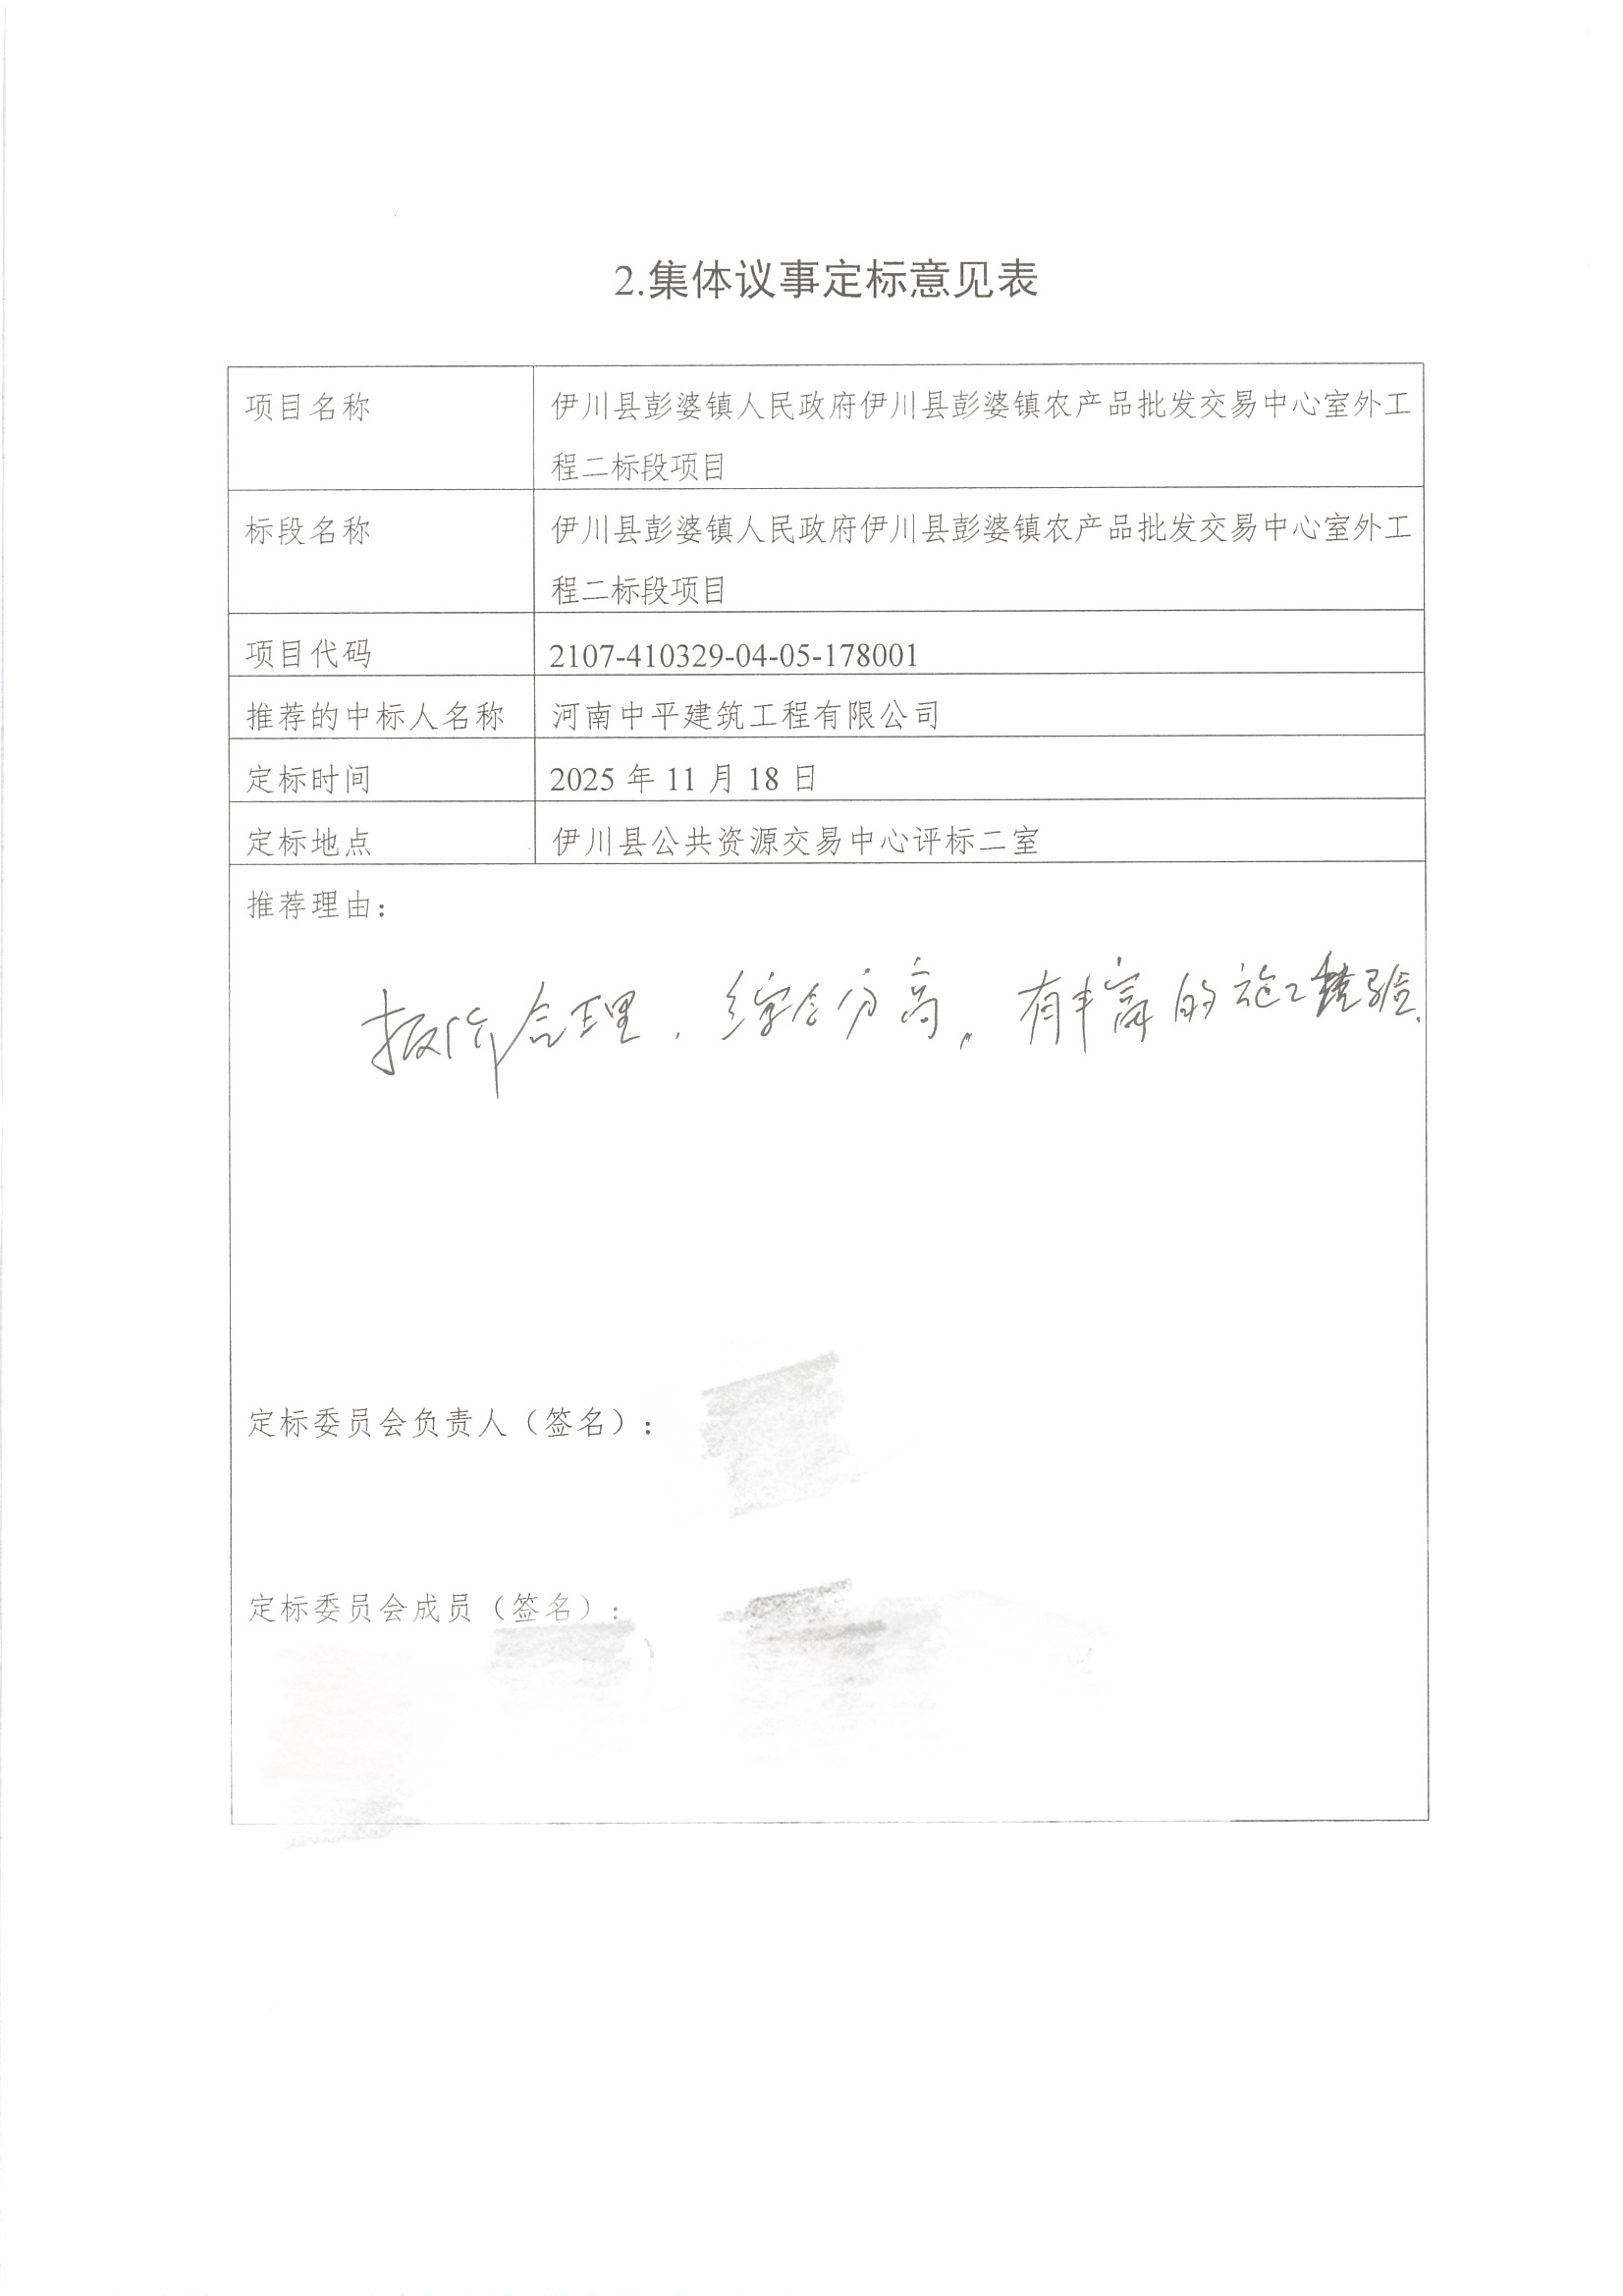 2.集体议事定标意见表
项目名称
伊川县彭婆镇人民政府伊川县彭婆镇农产品批发交易中心室外工
程二标段项目
标段名称
伊川县彭婆镇人民政府伊川县彭婆镇农产品批发交易中心室外工
程二标段项目
项目代码
2107-410329-04-05-178001
推荐的中标人名称
河南中平建筑工程有限公司
定标时间
2025 年 11 月 18 日
定标地点
伊川县公共资源交易中心评标二室
推荐理由：
报价合理，综合分高。有丰富的施工经验.
定标委员会负责人（签名）：
定标委员会成员（签名）：